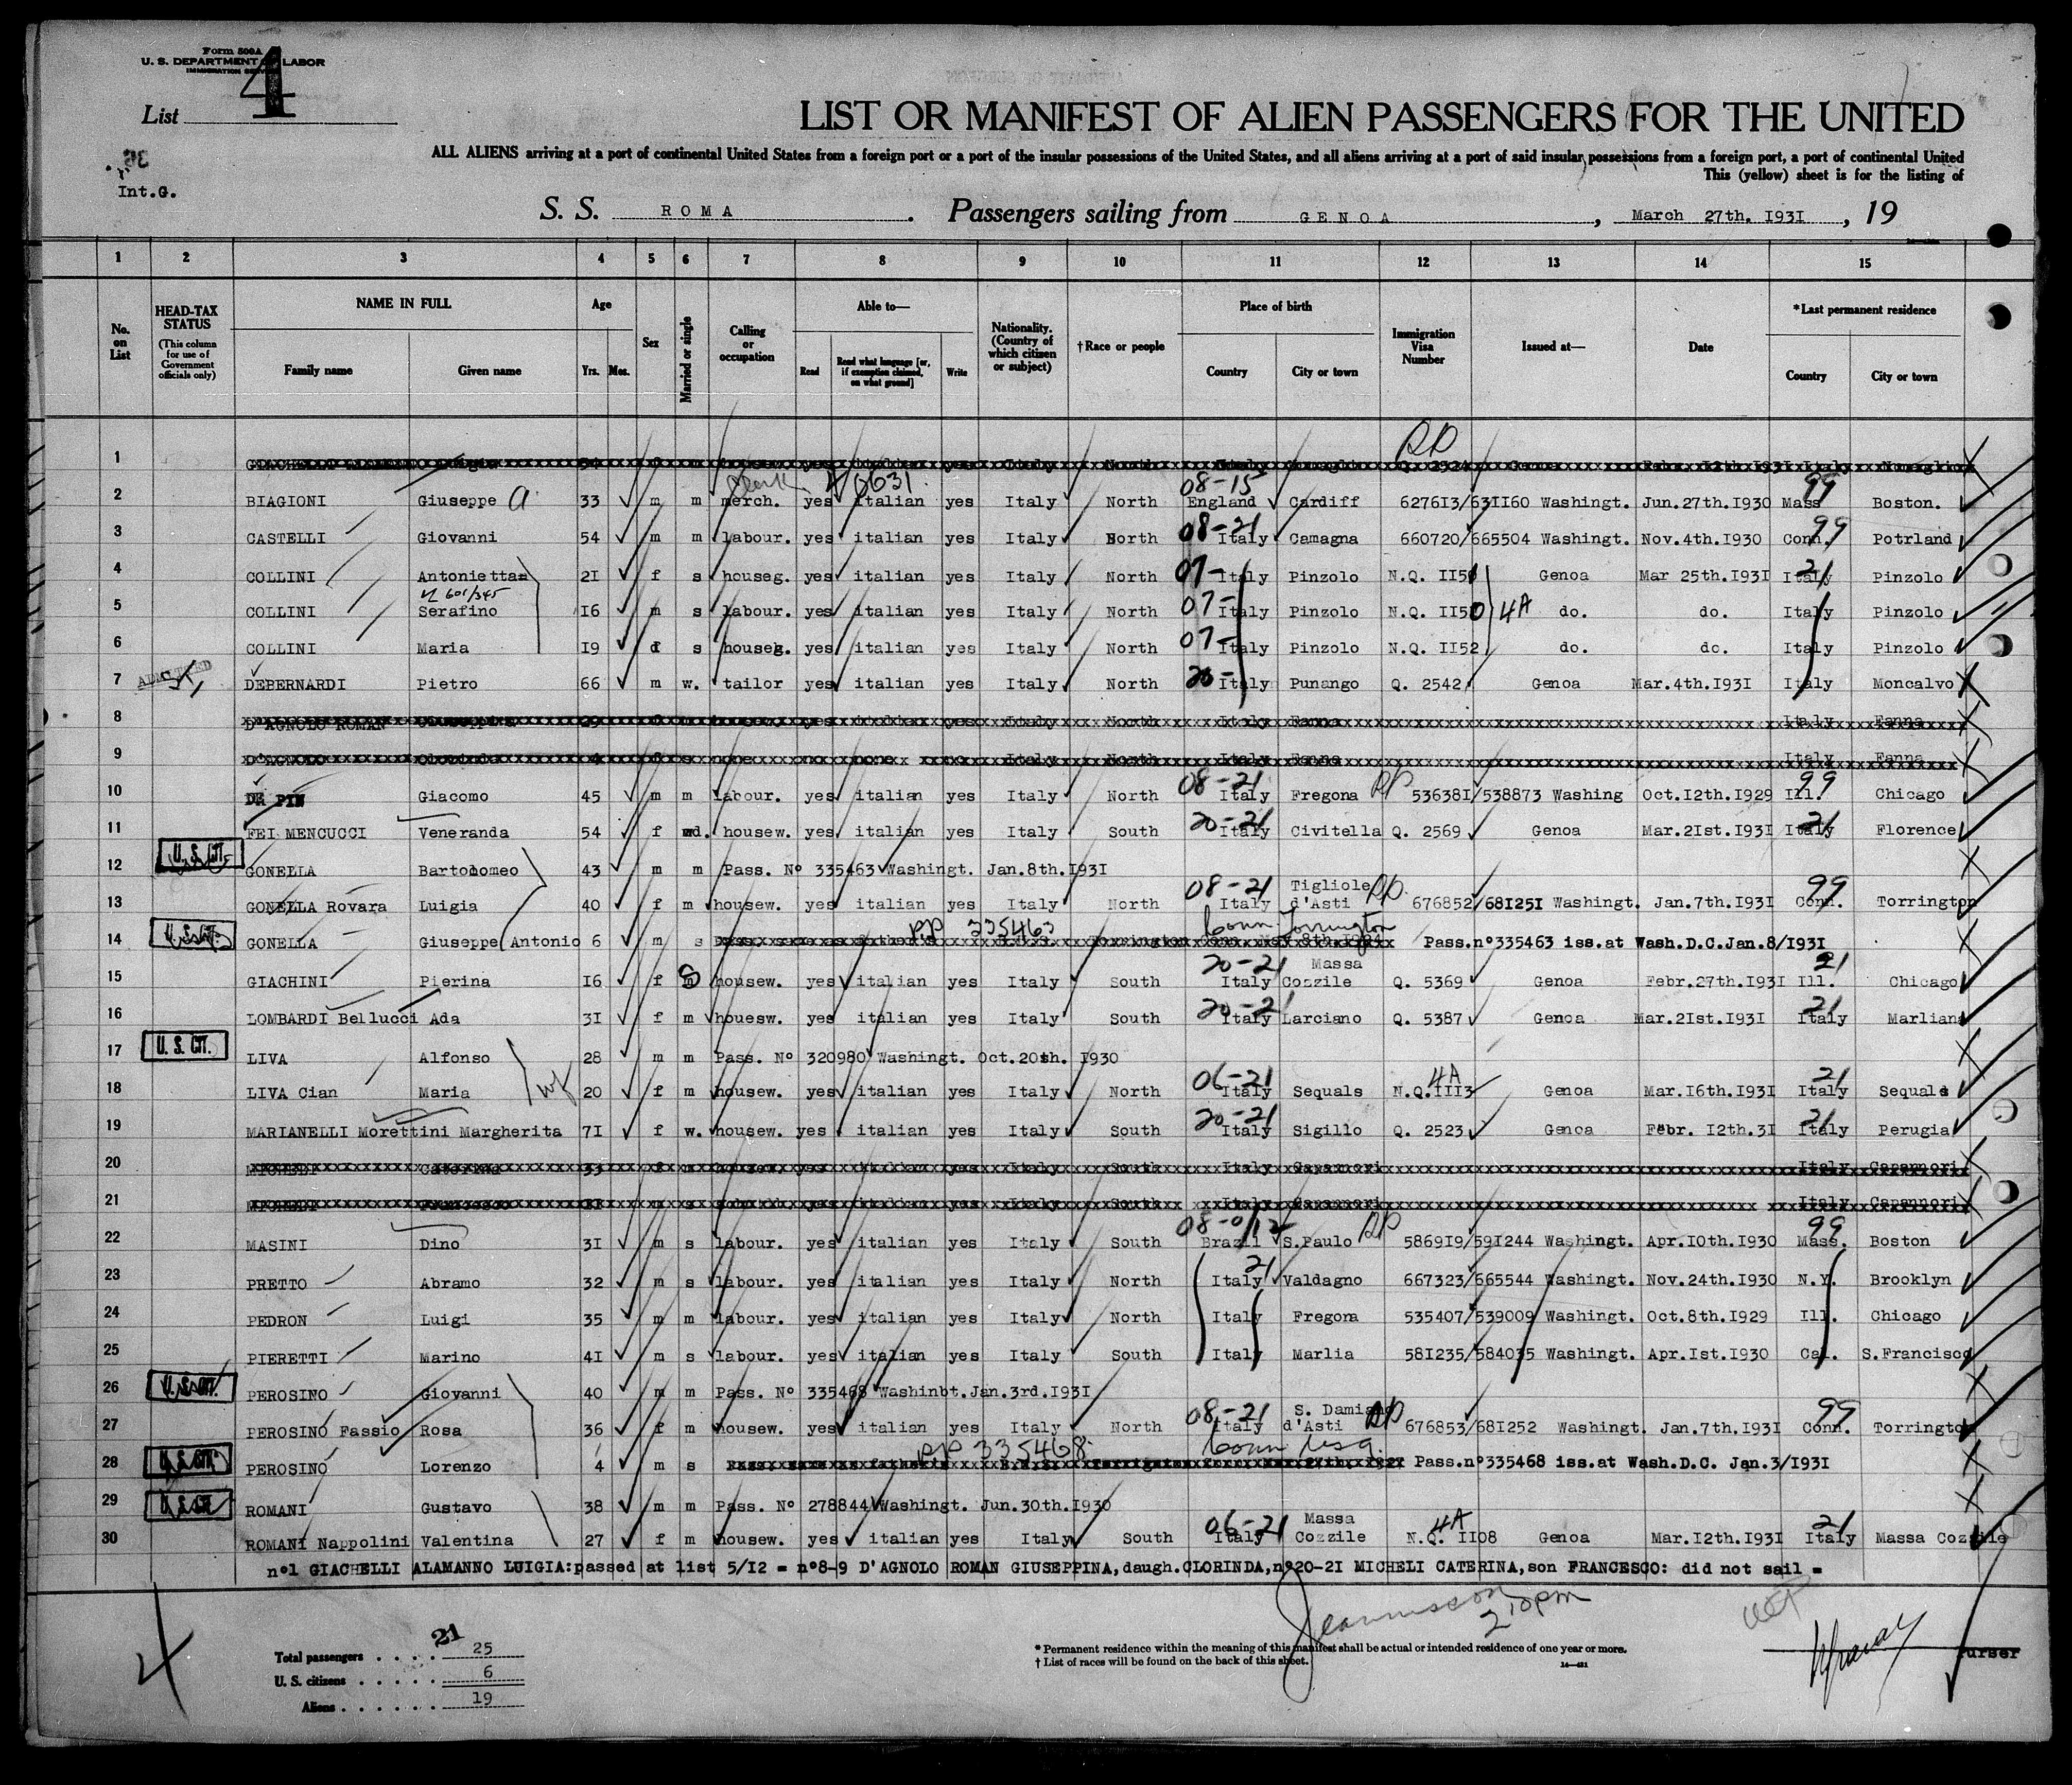 Form 500A
U. S. DEPARTMENT OF LABOR
IMMIGRATION SERVICE
List 4
LIST OR MANIFEST OF ALIEN PASSENGERS FOR THE UNITED
ALL ALIENS arriving at a port of continental United States from a foreign port or a port of the insular possessions of the United States, and all aliens arriving at a port of said insular possessions from a foreign port, a port of continental United
This (yellow) sheet is for the listing of
Int.G.
S. S. ROMA . Passengers sailing from GENOA , March 27th. 1931 , 19
1 2 3 4 5 6 7 8 9 10 11 12 13 14 15
No. on List
HEAD-TAX STATUS (This column for use of Government officials only)
NAME IN FULL Family name Given name
Age Yrs. Mos.
Sex
Married or single
Calling or occupation
Able to— Read Read what language [or, if exemption claimed, on what ground] Write
Nationality. (Country of which citizen or subject)
†Race or people
Place of birth Country City or town
Immigration Visa Number
Issued at—
Date
*Last permanent residence Country City or town
1 Italy North Q. 2524 Genoa Italy
2 BIAGIONI Giuseppe a 33 m m merch. yes italian yes Italy North 08-15 England Cardiff 627613/631160 Washingt. Jun.27th.1930 99 Mass Boston.
3 CASTELLI Giovanni 54 m m labour. yes italian yes Italy North 08-21 Italy Camagna 660720/665504 Washingt. Nov.4th.1930 99 Conn. Potrland
4 COLLINI Antonietta 21 f s houseg. yes italian yes Italy North 07- Italy Pinzolo N.Q. 1151 Genoa Mar 25th.1931 21 Italy Pinzolo
5 COLLINI Serafino 16 m s labour. yes italian yes Italy North 07- Italy Pinzolo N.Q. 1150 4A do. do. Italy Pinzolo
6 COLLINI Maria 19 f s houseg. yes italian yes Italy North 07- Italy Pinzolo N.Q. 1152 do. do. Italy Pinzolo
ADMITTED
7 DEBERNARDI Pietro 66 m w. tailor yes italian yes Italy North 20- Italy Punango Q. 2542 Genoa Mar.4th.1931 Italy Moncalvo
8 D'AGNOLO ROMAN Giuseppina 29 yes Italy North Italy Fanna Italy Fanna
9 D'AGNOLO none no none no Italy North Italy Fanna Italy Fanna
10 DE PIN Giacomo 45 m m labour. yes italian yes Italy North 08-21 Italy Fregona 536381/538873 Washing Oct.12th.1929 99 Ill. Chicago
11 FEI MENCUCCI Veneranda 54 f wd. housew. yes italian yes Italy South 20-21 Italy Civitella Q. 2569 Genoa Mar.21st.1931 21 Italy Florence
12 U. S. CIT. GONELLA Bartolomeo 43 m m Pass. Nº 335463 Washingt. Jan.8th.1931
13 GONELLA Rovara Luigia 40 f m housew. yes italian yes Italy North 08-21 Italy Tigliole d'Asti 676852/681251 Washingt. Jan.7th.1931 99 Conn. Torrington
14 U. S. CIT. GONELLA Giuseppe Antonio 6 m s PP 335463 Conn Torrington Pass.nº335463 iss.at Wash.D.C.Jan.8/1931
15 GIACHINI Pierina 16 f S housew. yes italian yes Italy South 20-21 Italy Massa Cozzile Q. 5369 Genoa Febr.27th.1931 21 Ill. Chicago
16 LOMBARDI Bellucci Ada 31 f m houesw. yes italian yes Italy South 20-21 Italy Larciano Q. 5387 Genoa Mar.21st.1931 21 Italy Marliana
17 U. S. CIT. LIVA Alfonso 28 m m Pass. Nº 320980 Washingt. Oct.20th. 1930
18 LIVA Cian Maria wf 20 f m housew. yes italian yes Italy North 06-21 Italy Sequals 4A N.Q.1113 Genoa Mar.16th.1931 21 Italy Sequals
19 MARIANELLI Morettini Margherita 71 f w. housew. yes italian yes Italy South 20-21 Italy Sigillo Q. 2523 Genoa Febr. 12th.31 21 Italy Perugia
20 MICHELI Caterina 33 f m housew. yes italian yes Italy South Italy Capannori Italy Capannori
21 MICHELI Francesco m s yes italian yes Italy South Italy Capannori Italy Capannori
22 MASINI Dino 31 m s labour. yes italian yes Italy South Brazil S.Paulo 586919/591244 Washingt. Apr.10th.1930 99 Mass. Boston
23 PRETTO Abramo 32 m s labour. yes italian yes Italy North 21 Italy Valdagno 667323/665544 Washingt. Nov.24th.1930 N.Y. Brooklyn
24 PEDRON Luigi 35 m m labour. yes italian yes Italy North Italy Fregona 535407/539009 Washingt. Oct.8th.1929 Ill. Chicago
25 PIERETTI Marino 41 m s labour. yes italian yes Italy South Italy Marlia 581235/584035 Washingt. Apr.1st.1930 Cal. S.Francisco
26 U. S. CIT. PEROSINO Giovanni 40 m m Pass. Nº 335468 Washinbt.Jan.3rd.1931
27 PEROSINO Fassio Rosa 36 f m housew. yes italian yes Italy North 08-21 Italy S. Damiano d'Asti 676853/681252 Washingt. Jan.7th.1931 99 Conn. Torrington
28 U. S. CIT. PEROSINO Lorenzo 4 m s PP 335468 Conn Pass.nº335468 iss.at Wash.D.C. Jan.3/1931
29 U. S. CIT. ROMANI Gustavo 38 m m Pass. Nº 278844 Washingt. Jun.30th.1930
30 ROMANI Nappolini Valentina 27 f m housew. yes italian yes Italy South 06-21 Italy Massa Cozzile 4A N.Q. 1108 Genoa Mar.12th.1931 21 Italy Massa Cozzile
nº1 GIACHELLI ALAMANNO LUIGIA:passed at list 5/12 = nº8-9 D'AGNOLO ROMAN GIUSEPPINA,daugh.CLORINDA,nº20-21 MICHELI CATERINA,son FRANCESCO: did not sail =
4
21
Total passengers . . . . 25
U. S. citizens . . . . . 6
Aliens . . . . . . 19
2 10 pm
* Permanent residence within the meaning of this manifest shall be actual or intended residence of one year or more.
† List of races will be found on the back of this sheet.
Purser